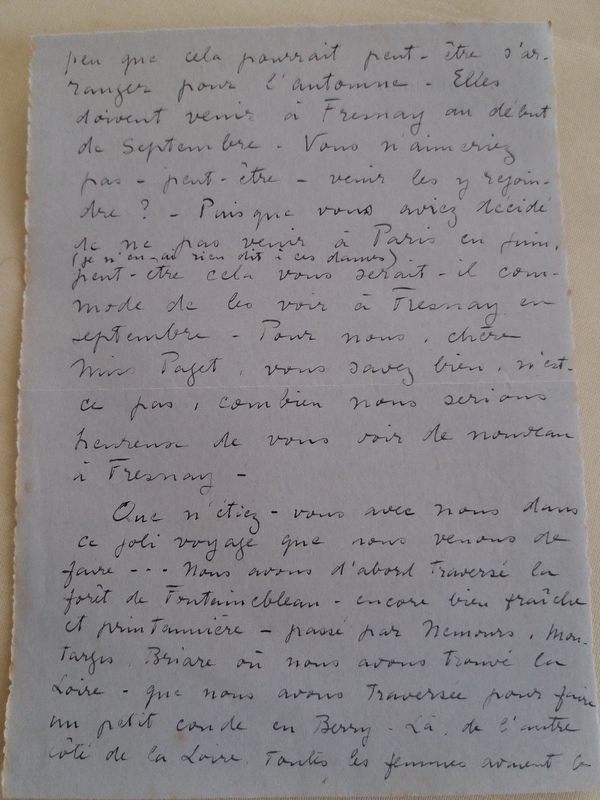 peu que cela pourrait peut-être s'ar-
ranger pour l'automne - Elles
doivent venir à Fresnay au début
de Septembre - Vous n'aimeriez
pas - peut-être - venir les y rejoin-
dre ? - Puisque vous aviez décidé
de ne pas venir à Paris en juin,
(je n'en ai rien dit à ces dames)
peut-etre cela vous serait-il com-
mode de les voir à Fresnay en
septembre - Pour nous, chère
Miss Paget, vous savez bien, n'est-
ce pas, combien nous serions
heureux de vous voir de nouveau
à Fresnay -
Que n'étiez-vous avec nous dans
ce joli voyage que nous venons de
faire --- Nous avons d'abord traversé la
forêt de Fontainebleau - encore bien fraîche
et printannière - passé par Nemours, Mon-
targis, Briare où nous avons trouvé la
Loire - que nous avons traversée pour faire
un petit coude en Berry. Là, de l'autre
côté de la Loire, toutes les femmes avaient